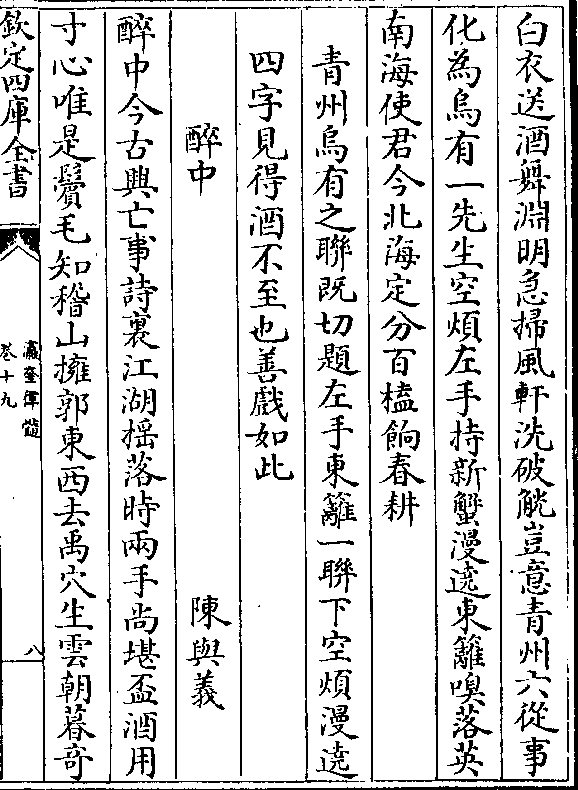 白衣送酒舞淵明急掃風軒洗破觥豈意青州六從事
化為烏有一先生空煩左手持新蟹漫遶東籬嗅落英
南海使君今北海定分百榼餉春耕
青州烏有之聯既切題左手東籬一聯下空煩漫遶
四字見得酒不至也善戲如此
醉中
陳與義
醉中今古興亡事詩裏江湖揺落時兩手尚堪盃酒用
寸心唯是鬢毛知稽山擁郭東西去禹穴生雲朝暮竒
欽定四庫全書
瀛奎律髓
卷十九
八